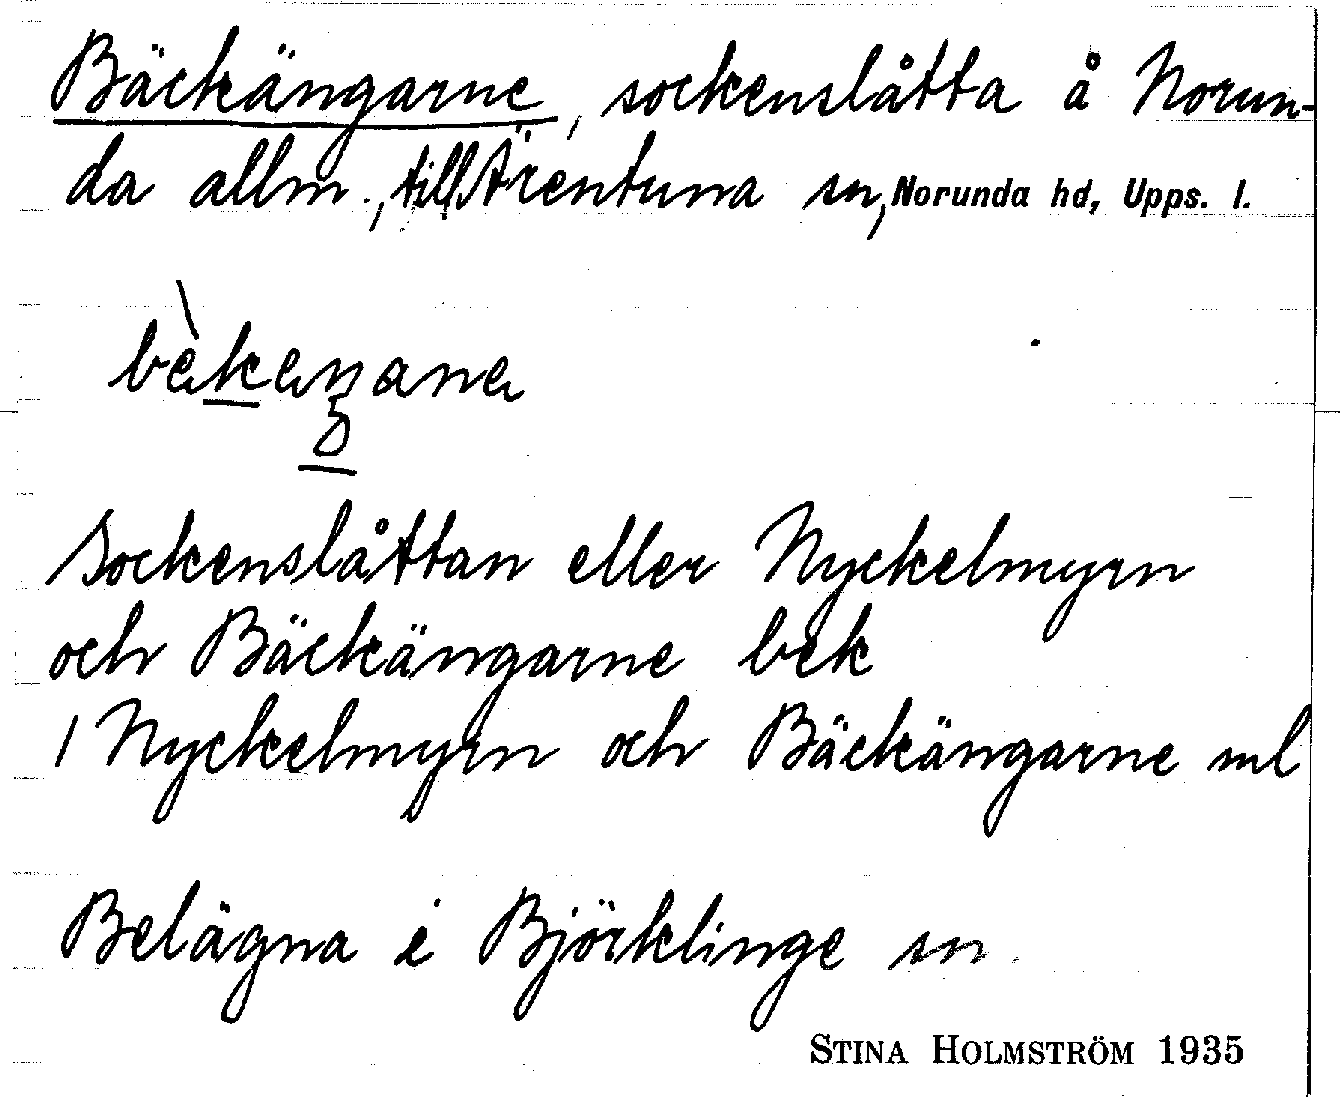 Bäckängarne, sockenslåtta å Norun-
da allm., till Ärentuna sn, Norunda hd, Upps. l.
Sockenslåttan eller Nyckelmyrn
och Bäckängarne bek
1 Nyckelmyrn och Bäckängarne ml
Belägna i Björklinge sn.
STINA HOLMSTRÖM 1935